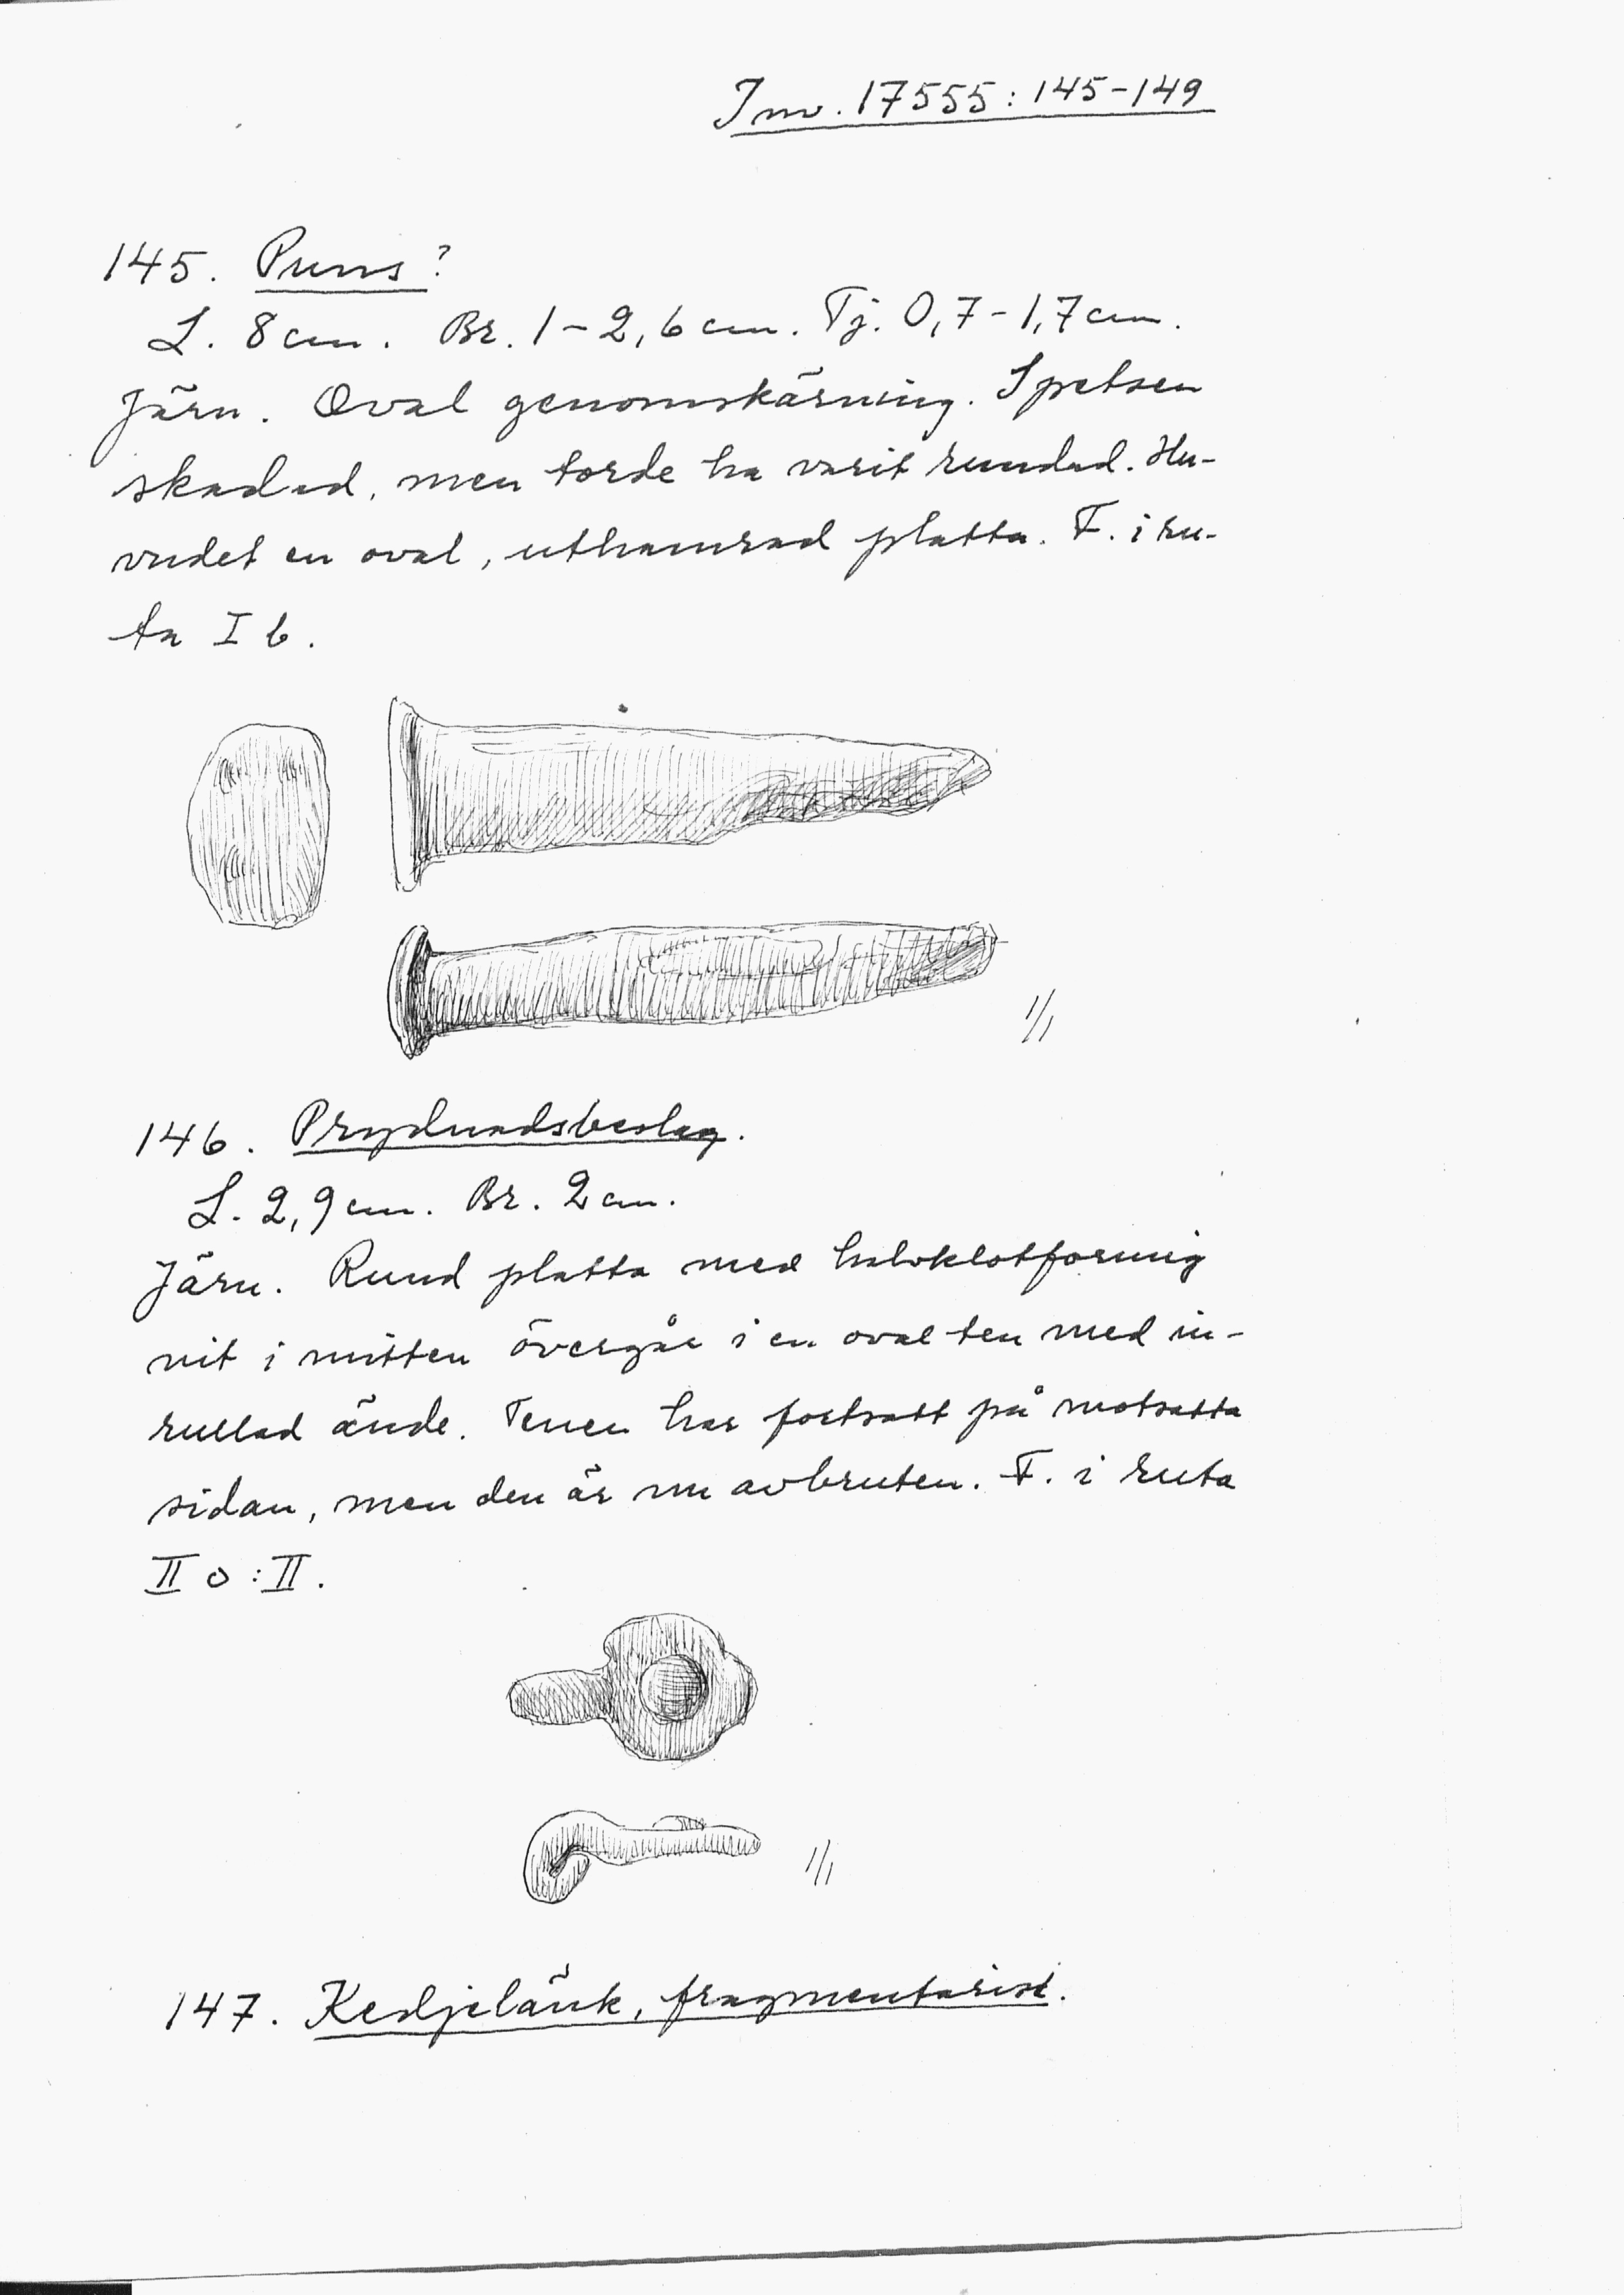 Inv. 17555:145-149
145. Puns?
L. 8 cm. Br. 1-2,6 cm. Tj. 0,7-1,7 cm.
Järn. Oval genomskärning. Spetsen
skadad, men torde ha varit rundad. Hu-
vudet en oval, uthamrad platta. F. i ru-
ta I b.
1/1
146. Prydnadsbeslag.
L. 2,9 cm. Br. 2 cm.
Järn. Rund platta med halvklotformig
nit i mitten övergår i en oval ten med in-
rullad ände. Tenen har fortsatt på motsatta
sidan, men den är nu avbruten. F. i ruta
II o:II.
1/1
147. Kedjelänk, fragmentarisk.